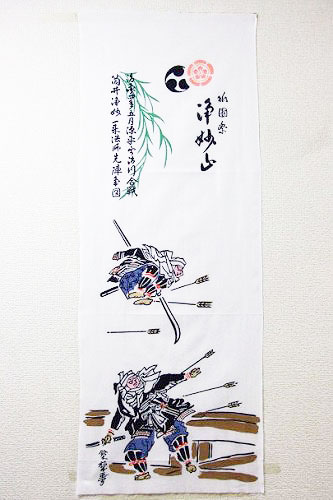 祇園祭
浄妙山
治承四年五月源平宇治川合戦
筒井浄妙 一来法師先陣図